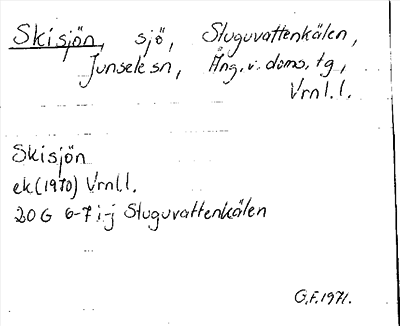 Skisjön, sjö, Stuguvattenkälen,
Junsele sn, Ång. v. doms. tg,
Vrnl. l.
Skisjön
ek (1970) Vrnl l.
20 G 6-7 i-j Stuguvattenkälen
G.F. 1971.